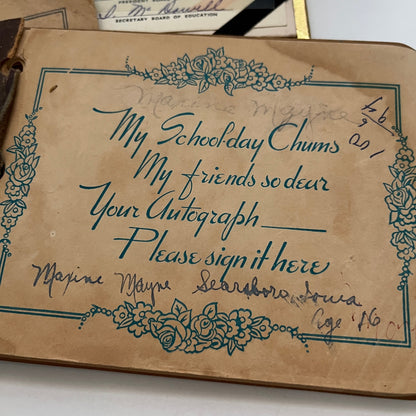 PRESIDENT BOARD
SECRETARY BOARD OF EDUCATION
Maxine Mayne
My School-day Chums
My friends so dear
Your Autograph
Please sign it here
Maxine Mayne Searsboro, Iowa
Age 16